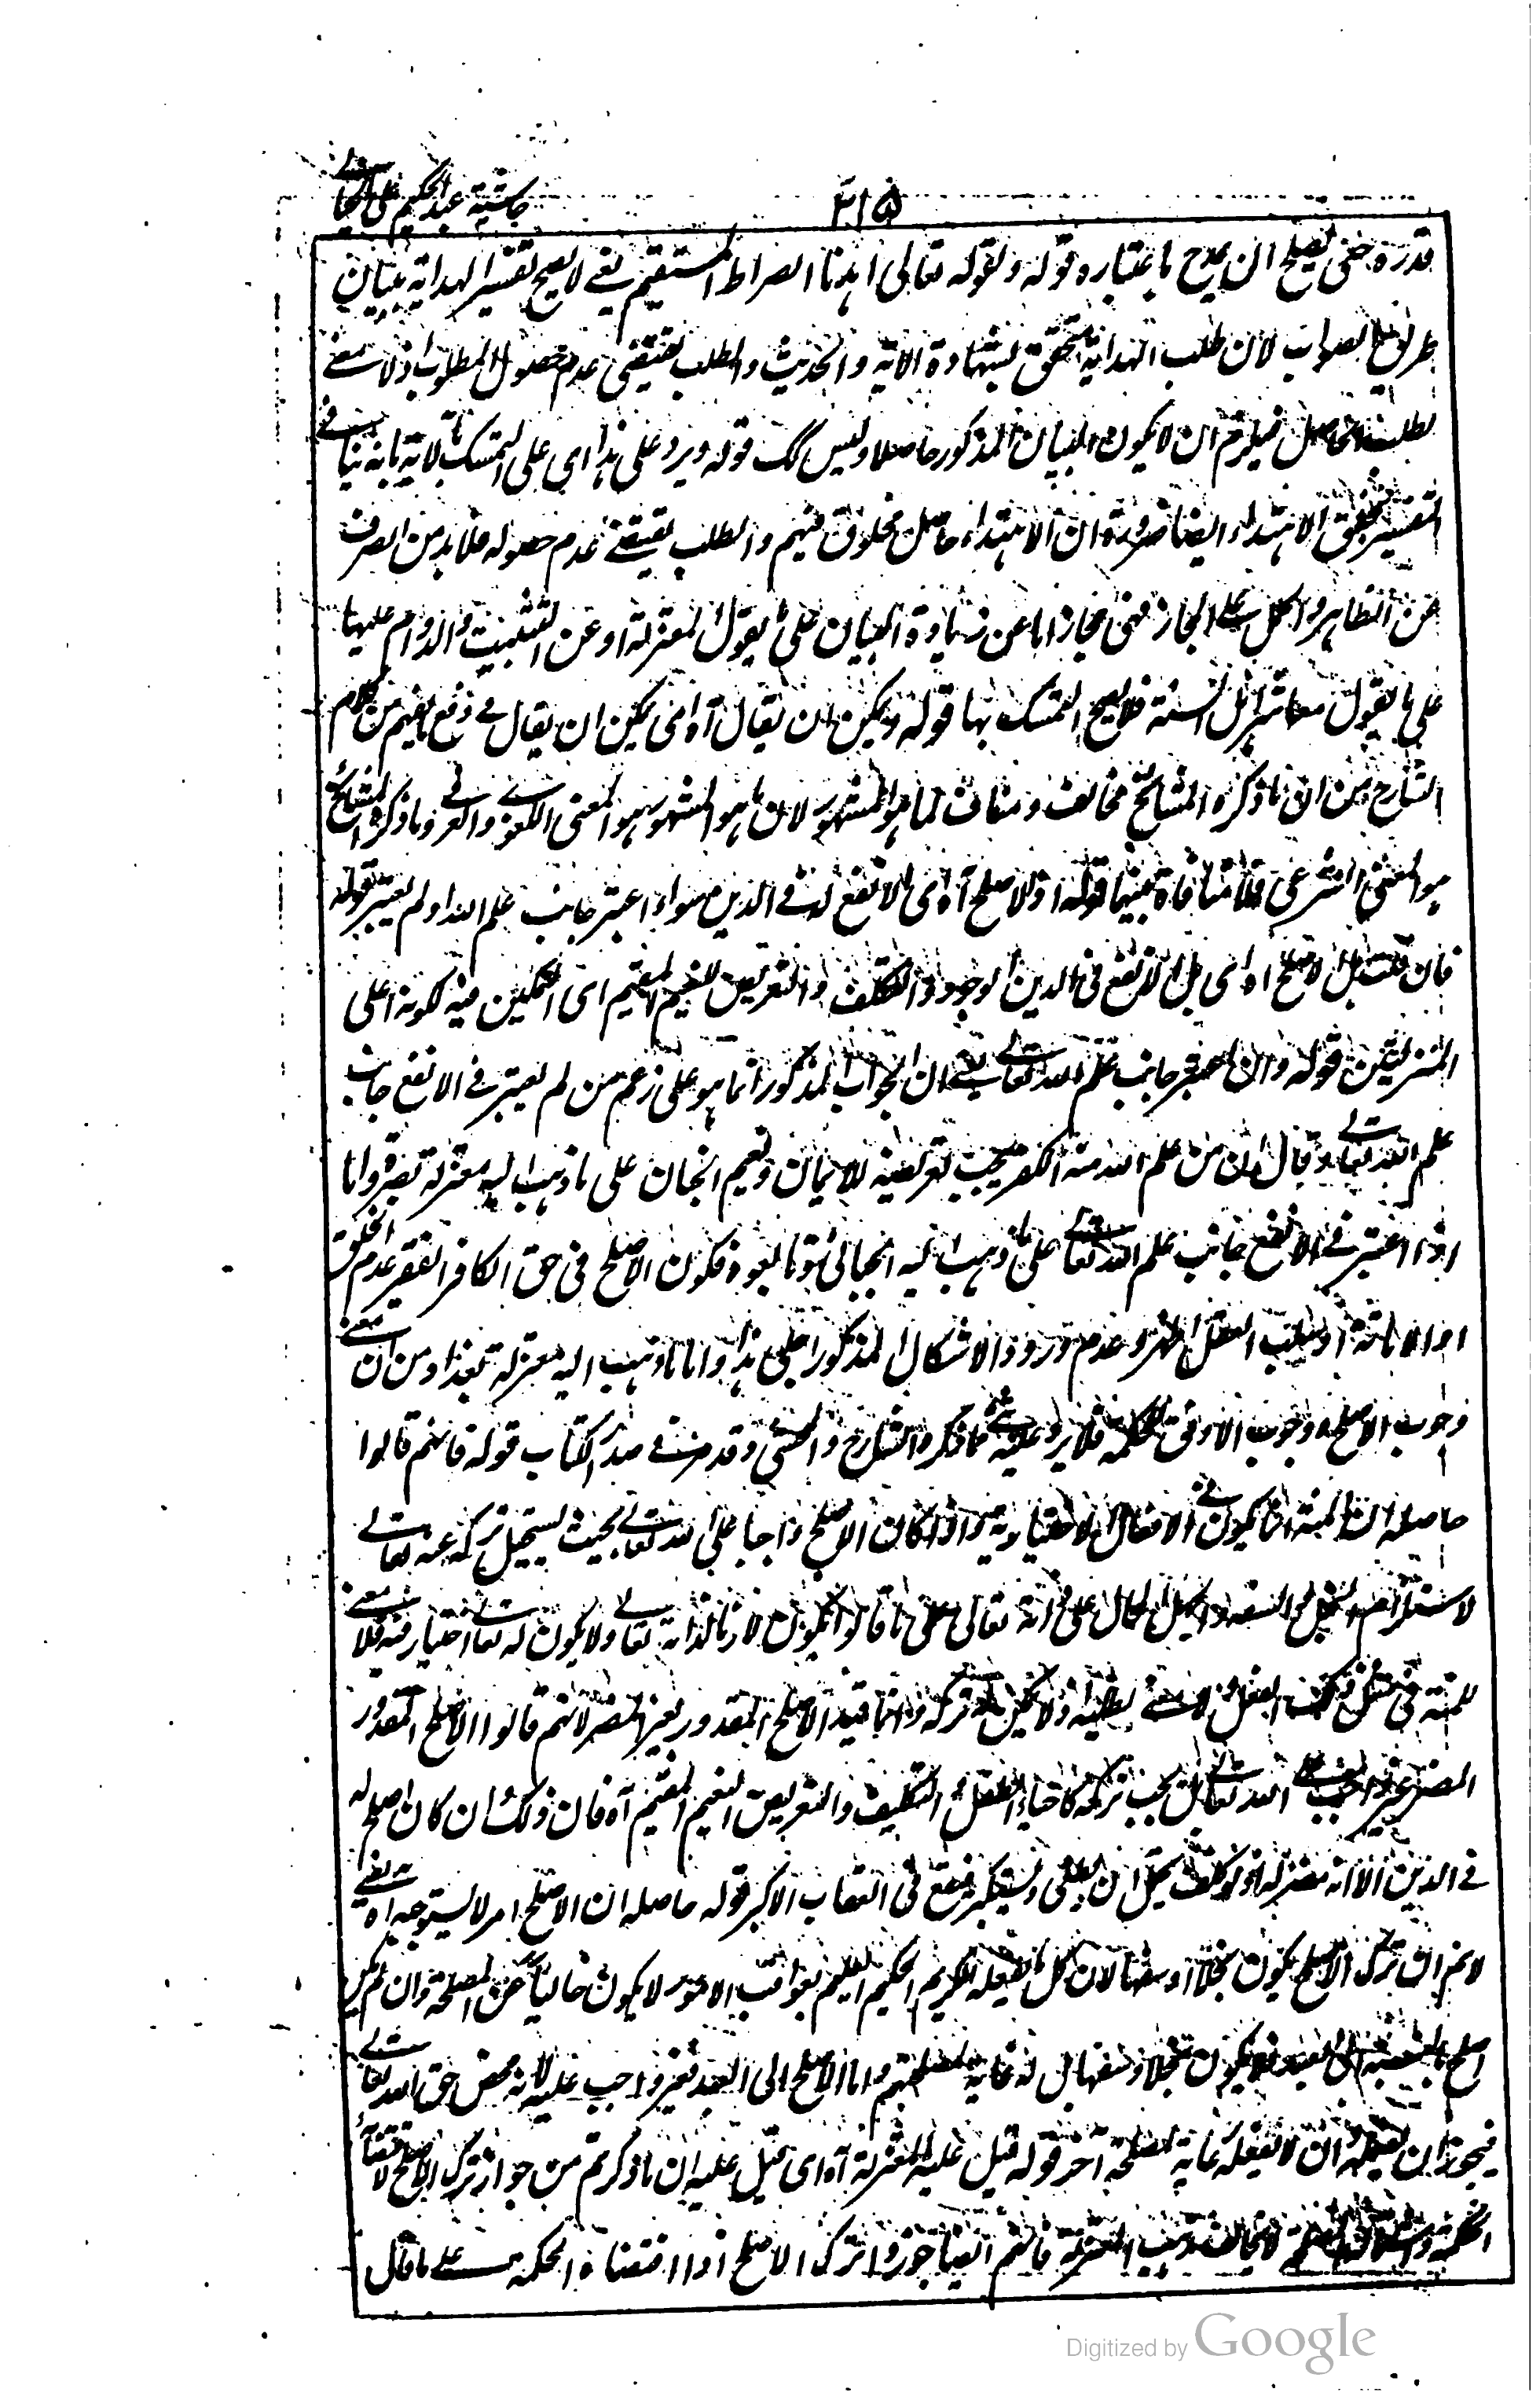 حاشیة عبدالحکیم علی الخیالی
۲۱۵
قدرة حتى يصلح ان يمدح باعتباره قوله ولقوله تعالى اهدنا الصراط المستقيم يعنے لا يصح تفسير الهداية ببيان
طريق الصواب لان طلب الهداية متحقق بشهادة الاية والحديث والطلب يقتضي عدم حصول المطلوب اذ لا معنے
لطلب الحاصل فيلزم ان لا يكون البيان المذكور حاصلا وليس كك قوله ويرد على هذا اى على التمسك بالاية بانه ينافے
التفسير بخلق الاهتداء ايضا ضرورة ان الاهتداء حاصل مخلوق فيهم والطلب يقتضے عدم حصوله فلا بد من الصرف
عن الظاهر والحمل على المجاز فهى مجاز اما عن زيادة البيان على ما يقول المعتزلة او عن التثبيت والدوام عليها
على ما يقول معاشر اهل السنة فلا يصح التمسك بها قوله ويمكن ان يقال آه اى يمكن ان يقال فے دفع ما يفهم من كلام
الشارح من ان ما ذكره المشائخ مخالف ومناف لما هو المشهور لان ما هو المشهور هو المعنى اللغوے والعرفے وما ذكره المشائخ
هو المعنى الشرعى فلا منافاة بينهما قوله اذ الاصلح آه اى الانفع له فے الدين سواء اعتبر جانب علم الله او لم يعتبر قوله
فان قلت بل الاصلح اه اى بل الانفع فى الدين الوجود والتكليف والتعريض للنعيم المقيم اى التمكين فيه لكونه اعلى
المنزلتين قوله وان اعتبر جانب علم الله تعالے يعنے ان الجواب المذكور انما هو على زعم من لم يعتبر فے الانفع جانب
علم الله تعالے وقال ان من علم الله منه الكفر يجب تعريضه للايمان ونعيم الجنان على ما ذهب اليه معتزلة بصره واما
اذا اعتبر فے الانفع جانب علم الله تعالے على ما ذهب اليه الجبائى وتابعوه فكون الاصلح فى حق الكافر الفقير عدم الخلق
او الاماتة او سلب العقل اظهر وعدم ورود الاشكال المذكور اجلى هذا واما ما ذهب اليه معتزلة بغداد من ان معنے
وجوب الاصلح وجوب الاوفق للحكمة فلا يرد عليه شئ مما ذكره الشارح والمحشي وقد مر فے صدر الكتاب قوله فانهم قالوا
حاصله ان المنة انما يكون فے الافعال الاختيارية واذا كان الاصلح واجبا على الله تعالے بحيث يستحيل تركه عنه تعالے
لاستلزامه البخل والسفه والجهل المحال على ذاته تعالى على ما قالوا يكون لازما لذاته تعالے ولا يكون له تعالے اختيار فيه فلا معنے
للمنة فى مثل ذلك الفعل ولا معنے لطلبه اذ لا يمكن له تركه وانما قيد الاصلح المقدور بغير المضر لانهم قالوا الاصلح المقدور
المضر غير واجب على الله تعالے بل يجب تركه كاحياء الطفل والتكليف والتعريض للنعيم المقيم آه فان ذلك وان كان اصلح له
فے الدين الا انه مضر له اذ لو كلف يحتمل ان يطغى ويستكبر فيقع فى العقاب الاكبر قوله حاصله ان الاصلح امر لا يستوجبه آه يعنے
لا نم ان ترك الاصلح يكون بخلا او سفها لان كل ما يفعله الكريم الحكيم العليم بعواقب الامور لا يكون خاليا عن المصلحة وان لم يكن
اصلح بالنسبة الى العبد فلا يكون بخلا وسفها بل له غاية مصلحتهم واما الاصلح الى العبد فغير واجب عليه لانه محض حق الله تعالے
فيجوز ان يفعله وان لا يفعله رعاية لمصلحة آخر قوله قيل عليه المعتزلة آه اى قيل عليه ان ما ذكرتم من جواز ترك الاصلح لاقتضاء
الحكمة لا يخالف مذهب المعتزلة فانهم ايضا جوزوا ترك الاصلح اذا اقتضاه الحكمة على ما قال
Digitized by Google